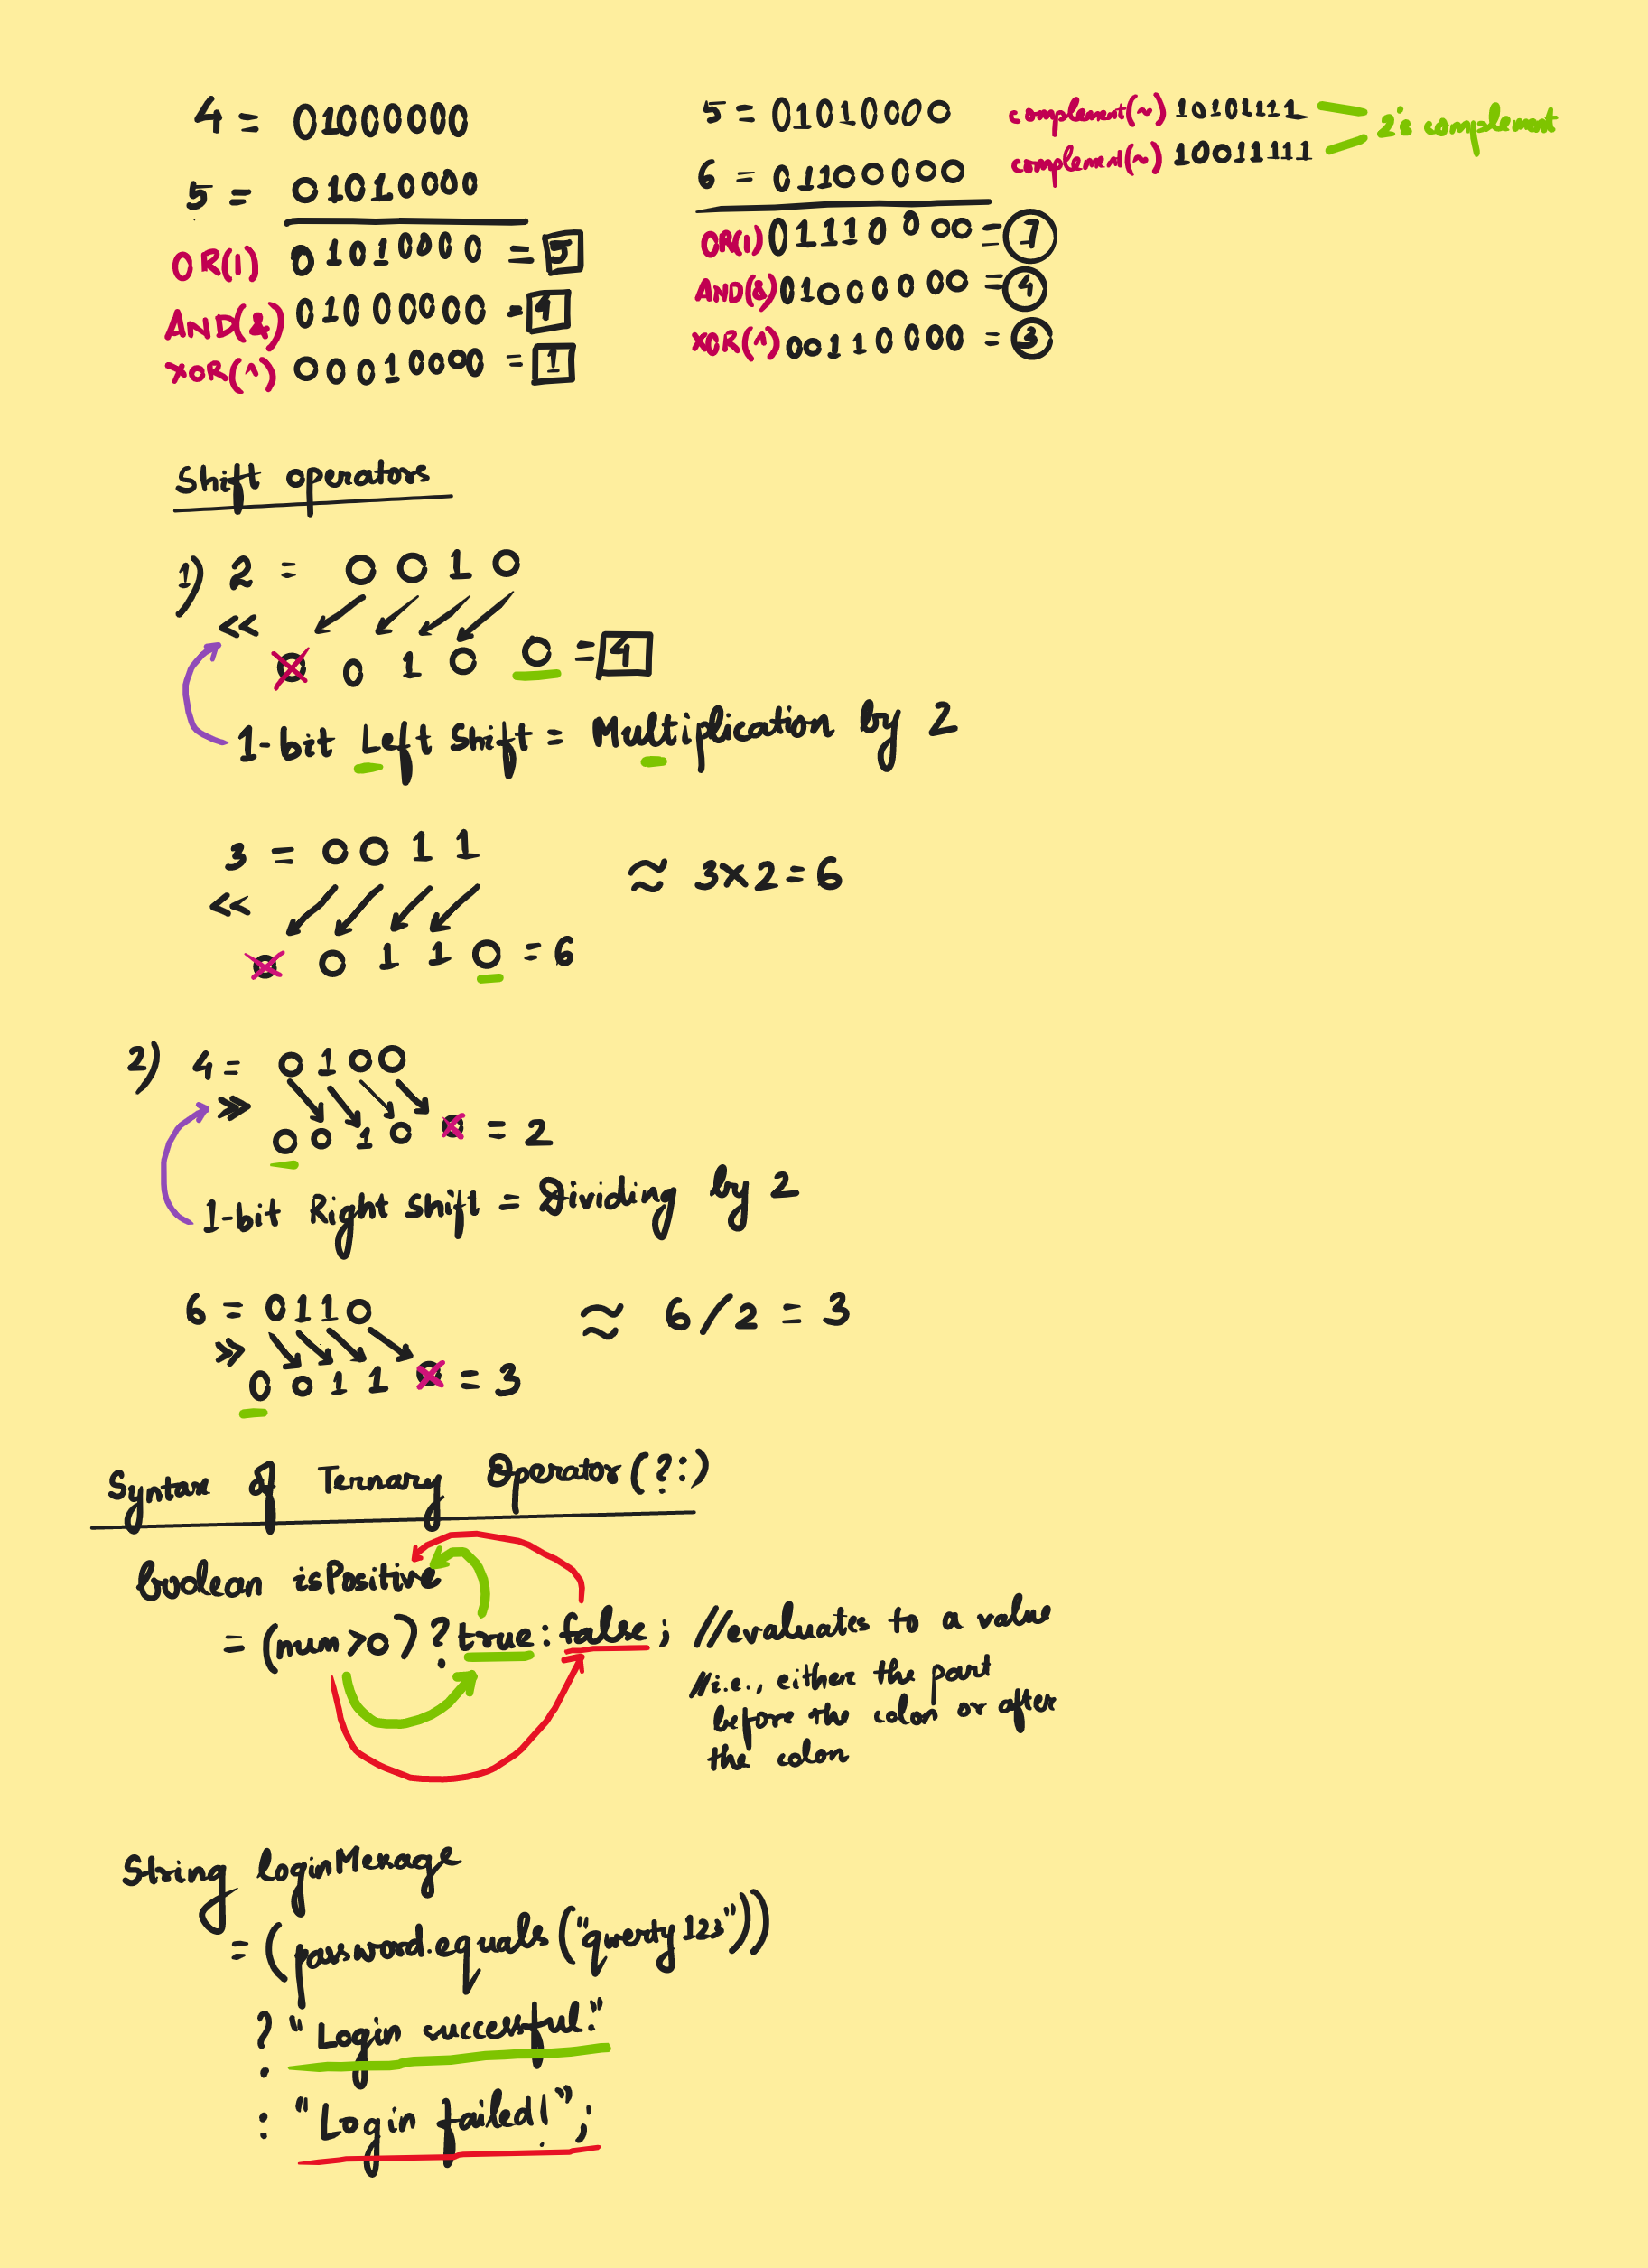 4 = 01000000
5 = 01010000
OR(|) 01010000 = 5
AND(&) 01000000 = 4
XOR(^) 00010000 = 1
5 = 01010000 complement(~) 10101111
6 = 01100000 complement(~) 10011111
2's complement
OR(|) 01110000 = 7
AND(&) 01000000 = 4
XOR(^) 00110000 = 3
Shift operators
1) 2 = 0 0 1 0
<<
0 0 1 0 0 = 4
1-bit Left Shift = Multiplication by 2
3 = 0 0 1 1 ≈ 3×2=6
<<
0 0 1 1 0 = 6
2) 4 = 0 1 0 0
>>
0 0 1 0 0 = 2
1-bit Right Shift = Dividing by 2
6 = 0 1 1 0 ≈ 6/2 = 3
>>
0 0 1 1 0 = 3
Syntax of Ternary Operator (?:)
boolean isPositive
= (num>0) ? true : false ; //evaluates to a value
//i.e., either the part
before the colon or after
the colon
String loginMessage
= (password.equals("qwerty123"))
? "Login successful."
: "Login failed!";